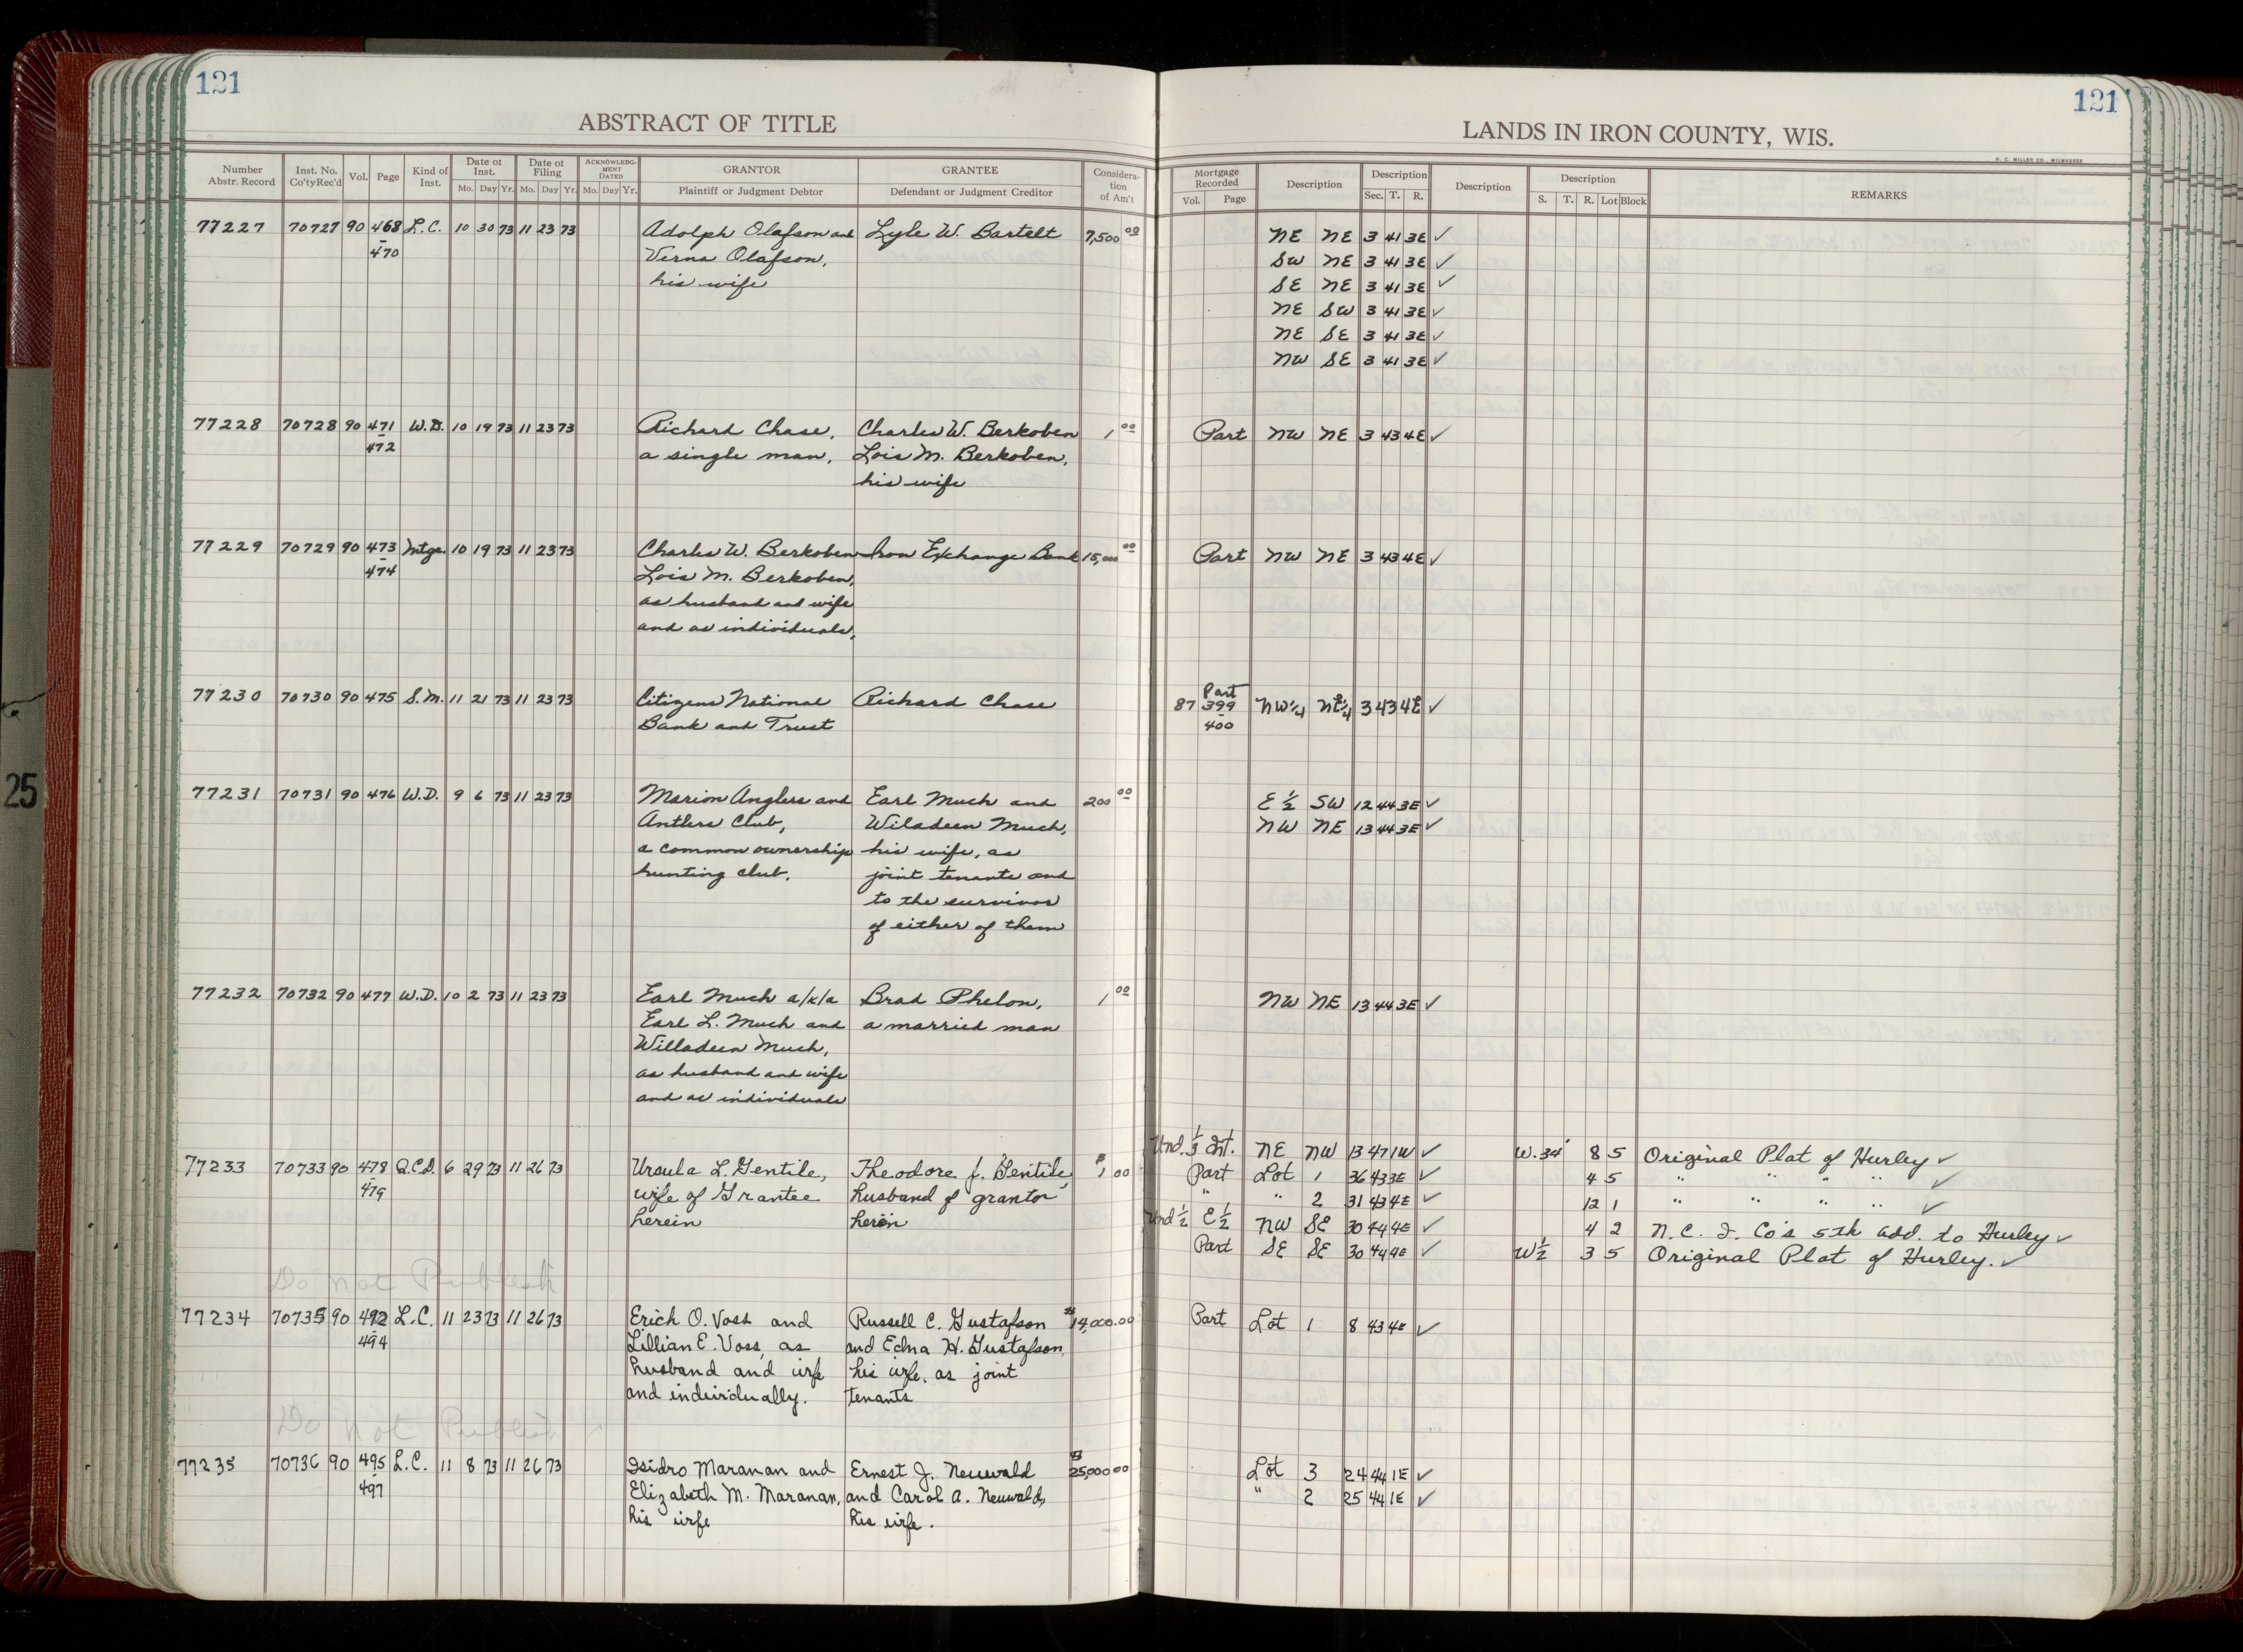 121
121
ABSTRACT OF TITLE
LANDS IN IRON COUNTY, WIS.
H. C. MILLER CO., MILWAUKEE
Number Abstr. Record | Inst. No. Co'ty Rec'd | Vol. | Page | Kind of Inst. | Date of Inst. Mo. Day Yr. | Date of Filing Mo. Day Yr. | ACKNOWLEDGMENT DATED Mo. Day Yr. | GRANTOR Plaintiff or Judgment Debtor | GRANTEE Defendant or Judgment Creditor | Consideration of Am't | Mortgage Recorded Vol. Page | Description | Description Sec. T. R. | Description | Description S. T. R. Lot Block | REMARKS
77227 70727 90 468 L.C. 10 30 73 11 23 73 Adolph Olafson and Lyle W. Bartelt 7,500 00 NE NE 3 41 3E ✓
- 470 Verna Olafson, SW NE 3 41 3E ✓
his wife SE NE 3 41 3E ✓
NE SW 3 41 3E ✓
NE SE 3 41 3E ✓
NW SE 3 41 3E ✓
77228 70728 90 471 W.D. 10 19 73 11 23 73 Richard Chase, Charles W. Berkoben 1 00 Part NW NE 3 43 4E ✓
- 472 a single man, Lois M. Berkoben,
his wife
77229 70729 90 473 Mtge. 10 19 73 11 23 73 Charles W. Berkoben Iron Exchange Bank 15,000 00 Part NW NE 3 43 4E ✓
- 474 Lois M. Berkoben,
as husband and wife
and as individuals,
77230 70730 90 475 S.M. 11 21 73 11 23 73 Citizens National Richard Chase 87 Part 399 - 400 NW¼ NE¼ 3 43 4E ✓
Bank and Trust
77231 70731 90 476 W.D. 9 6 73 11 23 73 Marion Anglers and Earl Much and 200 00 E ½ SW 12 44 3E ✓
Antlers Club, Wiladeen Much, NW NE 13 44 3E ✓
a common ownership his wife, as
hunting club. joint tenants and
to the survivor
of either of them
77232 70732 90 477 W.D. 10 2 73 11 23 73 Earl Much a/k/a Brad Phelon, 1 00 NW NE 13 44 3E ✓
Earl L. Much and a married man
Willadeen Much,
as husband and wife
and as individuals
Und. 1/3 Int. NE NW 13 47 1W ✓ W. 34' 8 5 Original Plat of Hurley ✓
77233 70733 90 478 Q.C.D. 6 29 73 11 26 73 Ursula L. Gentile, Theodore J. Gentile, $1 00 Part Lot 1 36 43 3E ✓ 4 5 " " " " ✓
- 479 wife of Grantee husband of grantor " " 2 31 43 4E ✓ 12 1 " " " " ✓
herein herein Und ½ E½ NW SE 30 44 4E ✓ 4 2 N.C. I. Co's 5th add. to Hurley ✓
Part SE SE 30 44 4E ✓ W½ 3 5 Original Plat of Hurley. ✓
Do not Publish
77234 70735 90 492 L.C. 11 23 73 11 26 73 Erich O. Voss and Russell C. Gustafson $14,000.00 Part Lot 1 8 43 4E ✓
- 494 Lillian E. Voss, as and Edna H. Gustafson,
husband and wife his wife, as joint
and individually. tenants
Do not Publish
77235 70736 90 495 L.C. 11 8 73 11 26 73 Isidro Maranan and Ernest J. Neuwald $25,000 00 Lot 3 24 44 1E ✓
- 497 Elizabeth M. Maranan, and Carol A. Neuwald, " 2 25 44 1E ✓
his wife his wife.
25